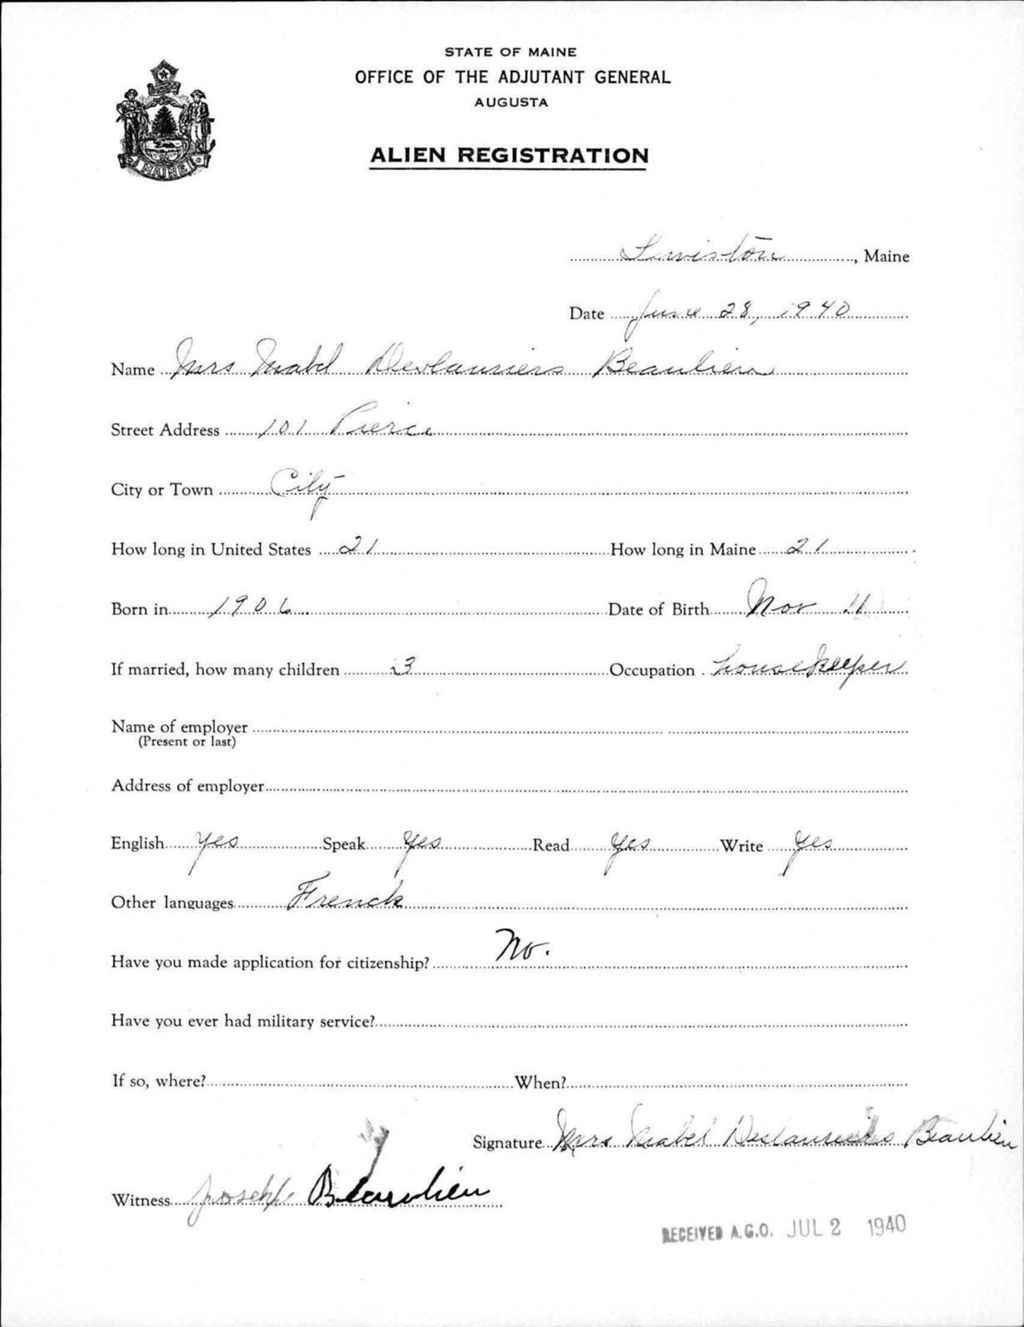 STATE OF MAINE
OFFICE OF THE ADJUTANT GENERAL
AUGUSTA
ALIEN REGISTRATION
MAINE
Lewiston, Maine
Date June 28, 1940
Name Mrs Mabel Deslauriers Beaulieu
Street Address 101 Pierce
City or Town City
How long in United States 21 How long in Maine 21
Born in 1906 Date of Birth Nov 11
If married, how many children 3 Occupation housekeeper
Name of employer
(Present or last)
Address of employer
English yes Speak yes Read yes Write yes
Other languages French
Have you made application for citizenship? No.
Have you ever had military service?
If so, where? When?
Signature Mrs Mabel Deslauriers Beaulieu
Witness Joseph Beaulieu
RECEIVED A.G.O. JUL 2 1940